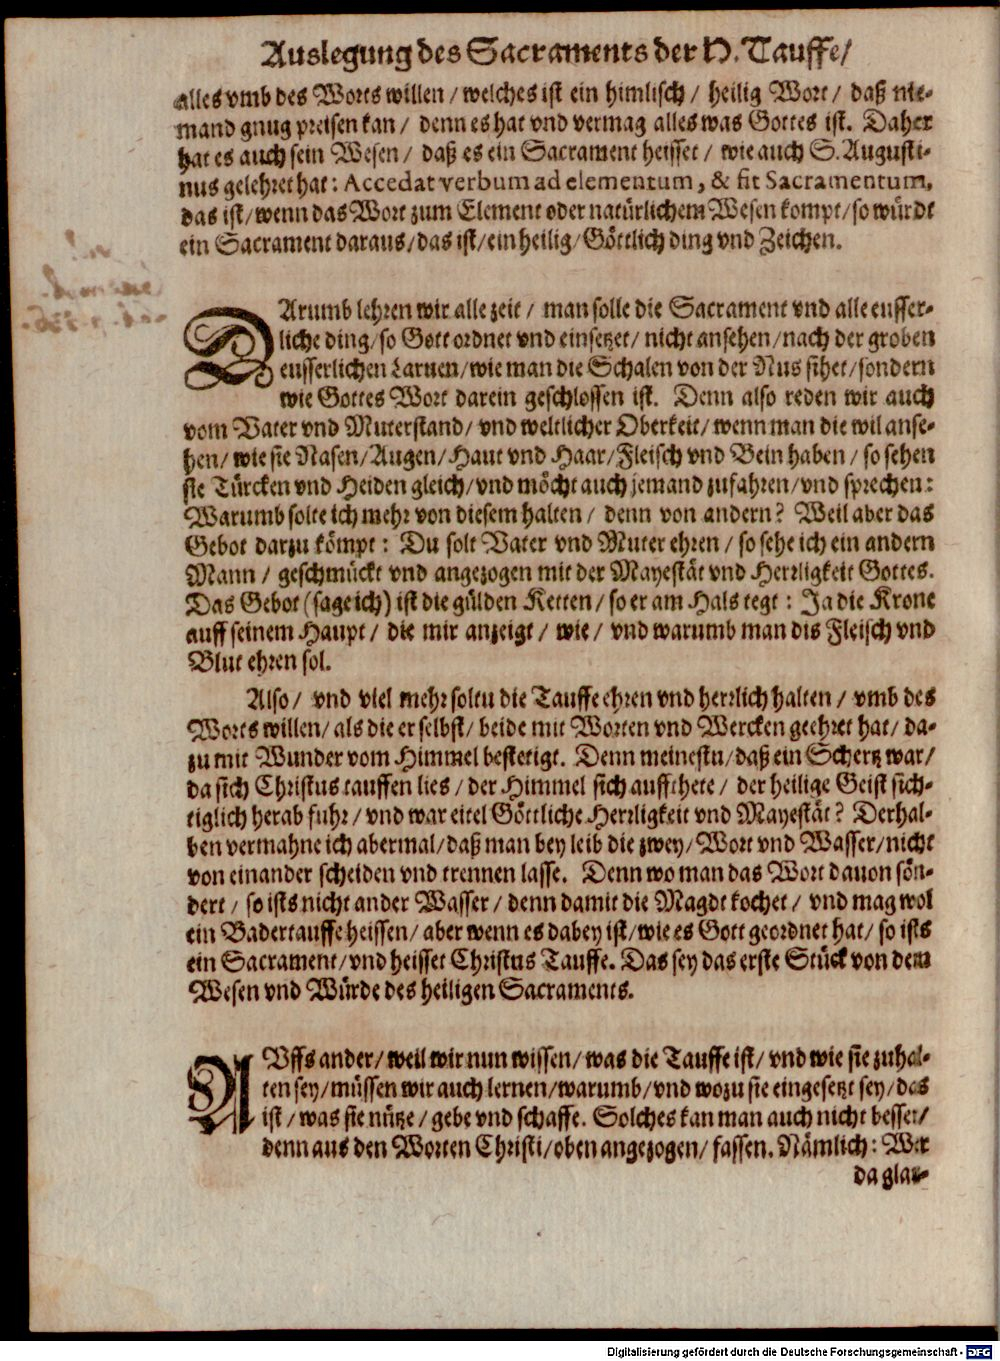 Auslegung des Sacraments der H. Tauffe/
alles vmb des Worts willen / welches ist ein himlisch / heilig Wort / daß nie-
mand gnug preisen kan / denn es hat vnd vermag alles was Gottes ist. Daher
hat es auch sein Wesen / daß es ein Sacrament heisset / wie auch S. Augusti-
nus gelehret hat: Accedat verbum ad elementum, & fit Sacramentum,
das ist/wenn das Wort zum Element oder natürlichem Wesen kompt/so würdt
ein Sacrament daraus/das ist/ein heilig/Göttlich ding vnd Zeichen.
DArumb lehren wir alle zeit / man solle die Sacrament vnd alle eusser-
liche ding/so Gott ordnet vnd einsetzet/ nicht ansehen/nach der groben
eusserlichen Laruen/wie man die Schalen von der Nus sihet/sondern
wie Gottes Wort darein geschlossen ist. Denn also reden wir auch
vom Vater vnd Muterstand/ vnd weltlicher Oberkeit/wenn man die wil anse-
hen/wie sie Nasen/Augen/Haut vnd Haar/Fleisch vnd Bein haben / so sehen
sie Türcken vnd Heiden gleich/vnd möcht auch jemand zufahren/vnd sprechen:
Warumb solte ich mehr von diesem halten / denn von andern? Weil aber das
Gebot darzu kömpt: Du solt Vater vnd Muter ehren / so sehe ich ein andern
Mann / geschmückt vnd angezogen mit der Mayestät vnd Herrligkeit Gottes.
Das Gebot (sage ich) ist die gülden Ketten / so er am Hals tegt: Ja die Krone
auff seinem Haupt / die mir anzeigt / wie / vnd warumb man dis Fleisch vnd
Blut ehren sol.
Also / vnd viel mehr soltu die Tauffe ehren vnd herrlich halten / vmb des
Worts willen/ als die er selbst/ beide mit Worten vnd Wercken geehret hat/ da-
zu mit Wunder vom Himmel bestetigt. Denn meinestu/daß ein Schertz war/
da sich Christus tauffen lies / der Himmel sich auffthete / der heilige Geist sich-
tiglich herab fuhr/ vnd war eitel Göttliche Herrligkeit vnd Mayestät? Derhal-
ben vermahne ich abermal/daß man bey leib die zwey/Wort vnd Wasser/nicht
von einander scheiden vnd trennen lasse. Denn wo man das Wort dauon sön-
dert / so ists nicht ander Wasser / denn damit die Magdt kochet / vnd mag wol
ein Badertauffe heissen/ aber wenn es dabey ist/wie es Gott geordnet hat/ so ists
ein Sacrament/vnd heisset Christus Tauffe. Das sey das erste Stück von dem
Wesen vnd Würde des heiligen Sacraments.
AVffs ander/ weil wir nun wissen/ was die Tauffe ist/ vnd wie sie zuhal-
ten sey/müssen wir auch lernen/warumb/vnd wozu sie eingesetzt sey/das
ist / was sie nütze / gebe vnd schaffe. Solches kan man auch nicht besser/
denn aus den Worten Christi/oben angezogen/ fassen. Nämlich: Wer
da glau-
Digitalisierung gefördert durch die Deutsche Forschungsgemeinschaft - DFG